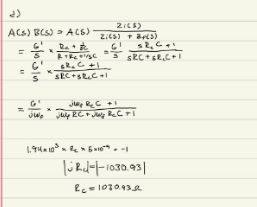 2)
A(s) B(s) = A(s) Z1(s) / Z1(s) + Z2(s)
= G' / s × Rc + 1/sC / R + Rc + 1/sC = G' / s sRcC + 1 / sRC + sRcC + 1
= G' / s × sRcC + 1 / sRC + sRcC + 1
= G' / jωp × jωp RcC + 1 / jωp RC + jωp RcC + 1
1.94×10³ × Rc × 5×10⁻⁹ = -1
|jRc| = |-1030.93|
Rc = 1030.93 Ω